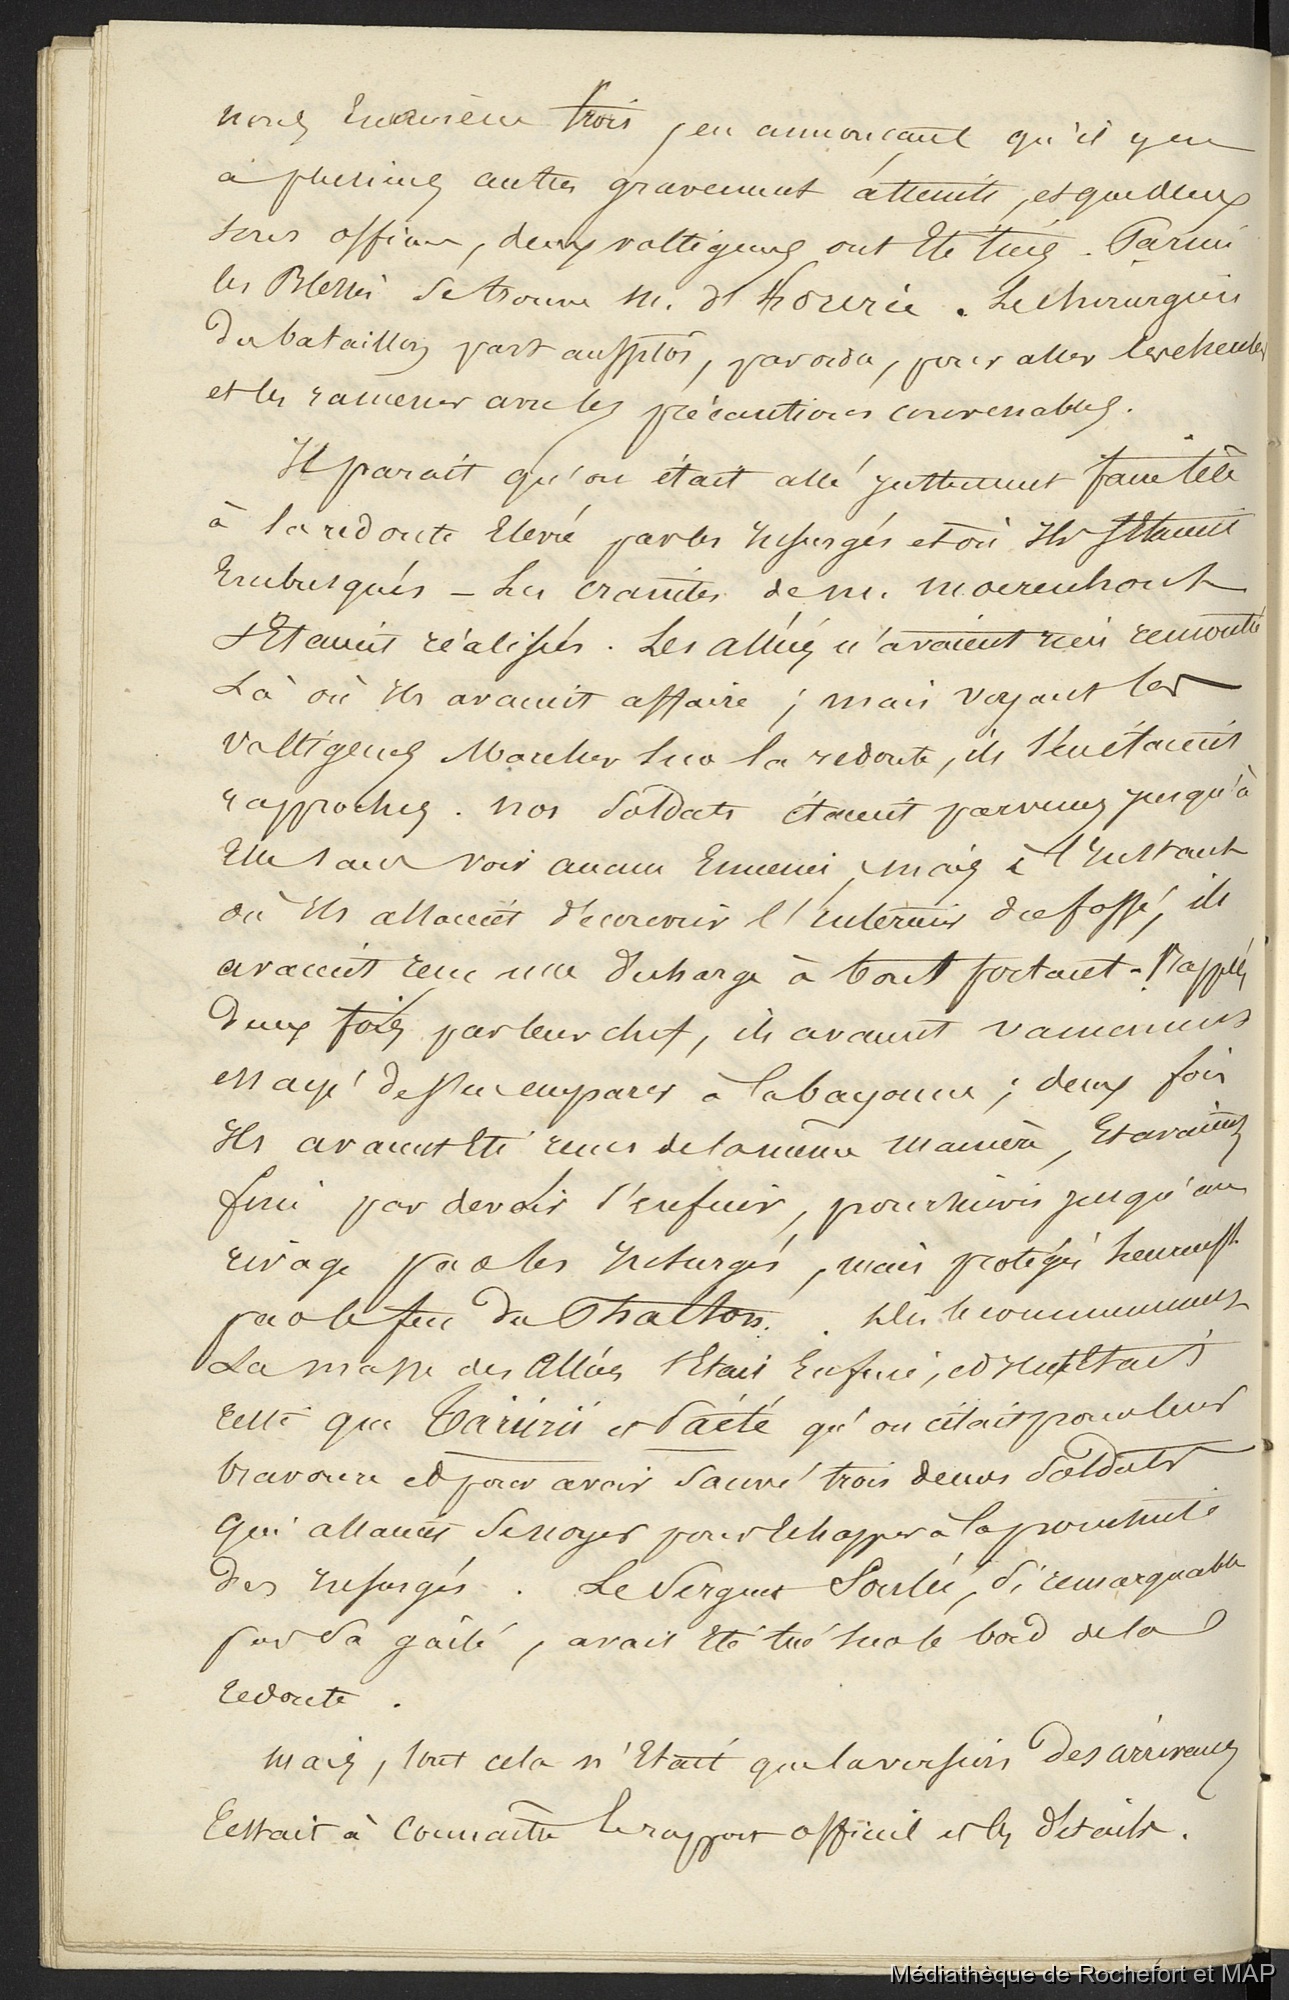 nous en amène trois, en annonçant qu'il y en
a plusieurs autres gravement atteints, et que deux
sous officiers, deux voltigeurs ont été tués. Parmi
les Blessés se trouve M. d'
Le chirurgien
du bataillon part aussitôt, par ordre, pour aller les chercher
et les ramener avec les précautions convenables.
Il parait qu'on était allé justement faire tête
à la redoute élevée par les insurgés et où ils s'étaient
embusqués – Les craintes de M. Moerenhout
s'étaient réalisées. Les alliés n'avaient rien remontré
Là où ils avaient affaire ; mais voyant les
voltigeurs marcher sur la redoute, ils s'en étaient
rapprochés. nos soldats étaient parvenus jusqu'à
elle sans voir aucun ennemi, mais à l'instant
où ils allaient découvrir l'intérieur du fossé, ils
avaient reçu une décharge à bout portant. Rappelés
deux fois par leur chef, ils avaient vainement
essayé de s'en emparer à la bayonne ; deux fois
ils avaient été reçus de la même manière, et avaient
fini par devoir s'enfuir, poursuivis jusqu'au
rivage par les insurgés, mais protégés heureust
par le feu du Phaéton. Dès le commencement
La masse des Alliés s'était enfuie, et il n'était
resté que Tariirii et Paété qu'on citait pour leur
bravoure et pour avoir sauvé trois de nos soldats
qui allaient se noyer pour échapper à la poursuite
des insurgés. Le Sergent
, si remarquable
par sa gaîté, avait été tué sur le bord de la
redoute.
Mais, tout cela n'était que la version des arrivans
restait à connaître le rapport officiel et les détails.
Médiathèque de Rochefort et MAP